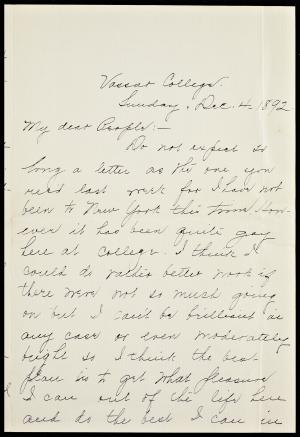 Vassar College.
Sunday, Dec. 4, 1892
My dear People:—
Do not expect so
long a letter as the one you
rec'd last week for I have not
been to New York this time. How-
ever it has been quite gay
here at College. I think I
could do rather better work if
there were not so much going
on but I can't be brilliant in
any case or even moderately
bright so I think the best
plan is to get what pleasure
I can out of the life here
and do the best I can in